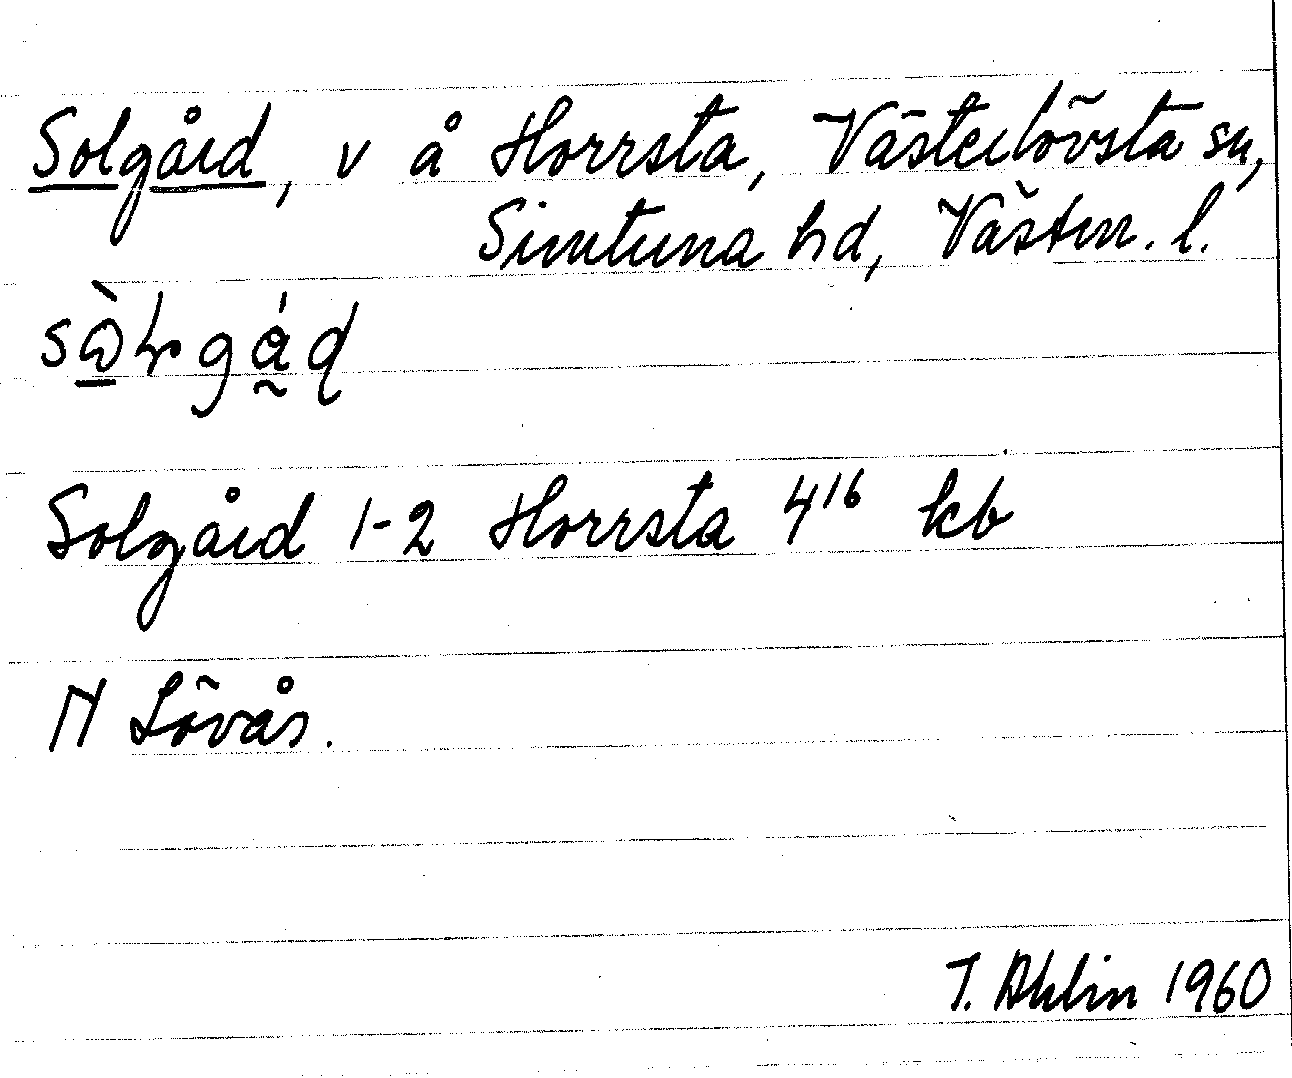 Solgård, v å Horrsta, Västerlövsta sn,
Simtuna hd, Västm. l.
Solgård 1-2 Horrsta 4¹⁶ kb
N Lövås.
T. Ahlin 1960